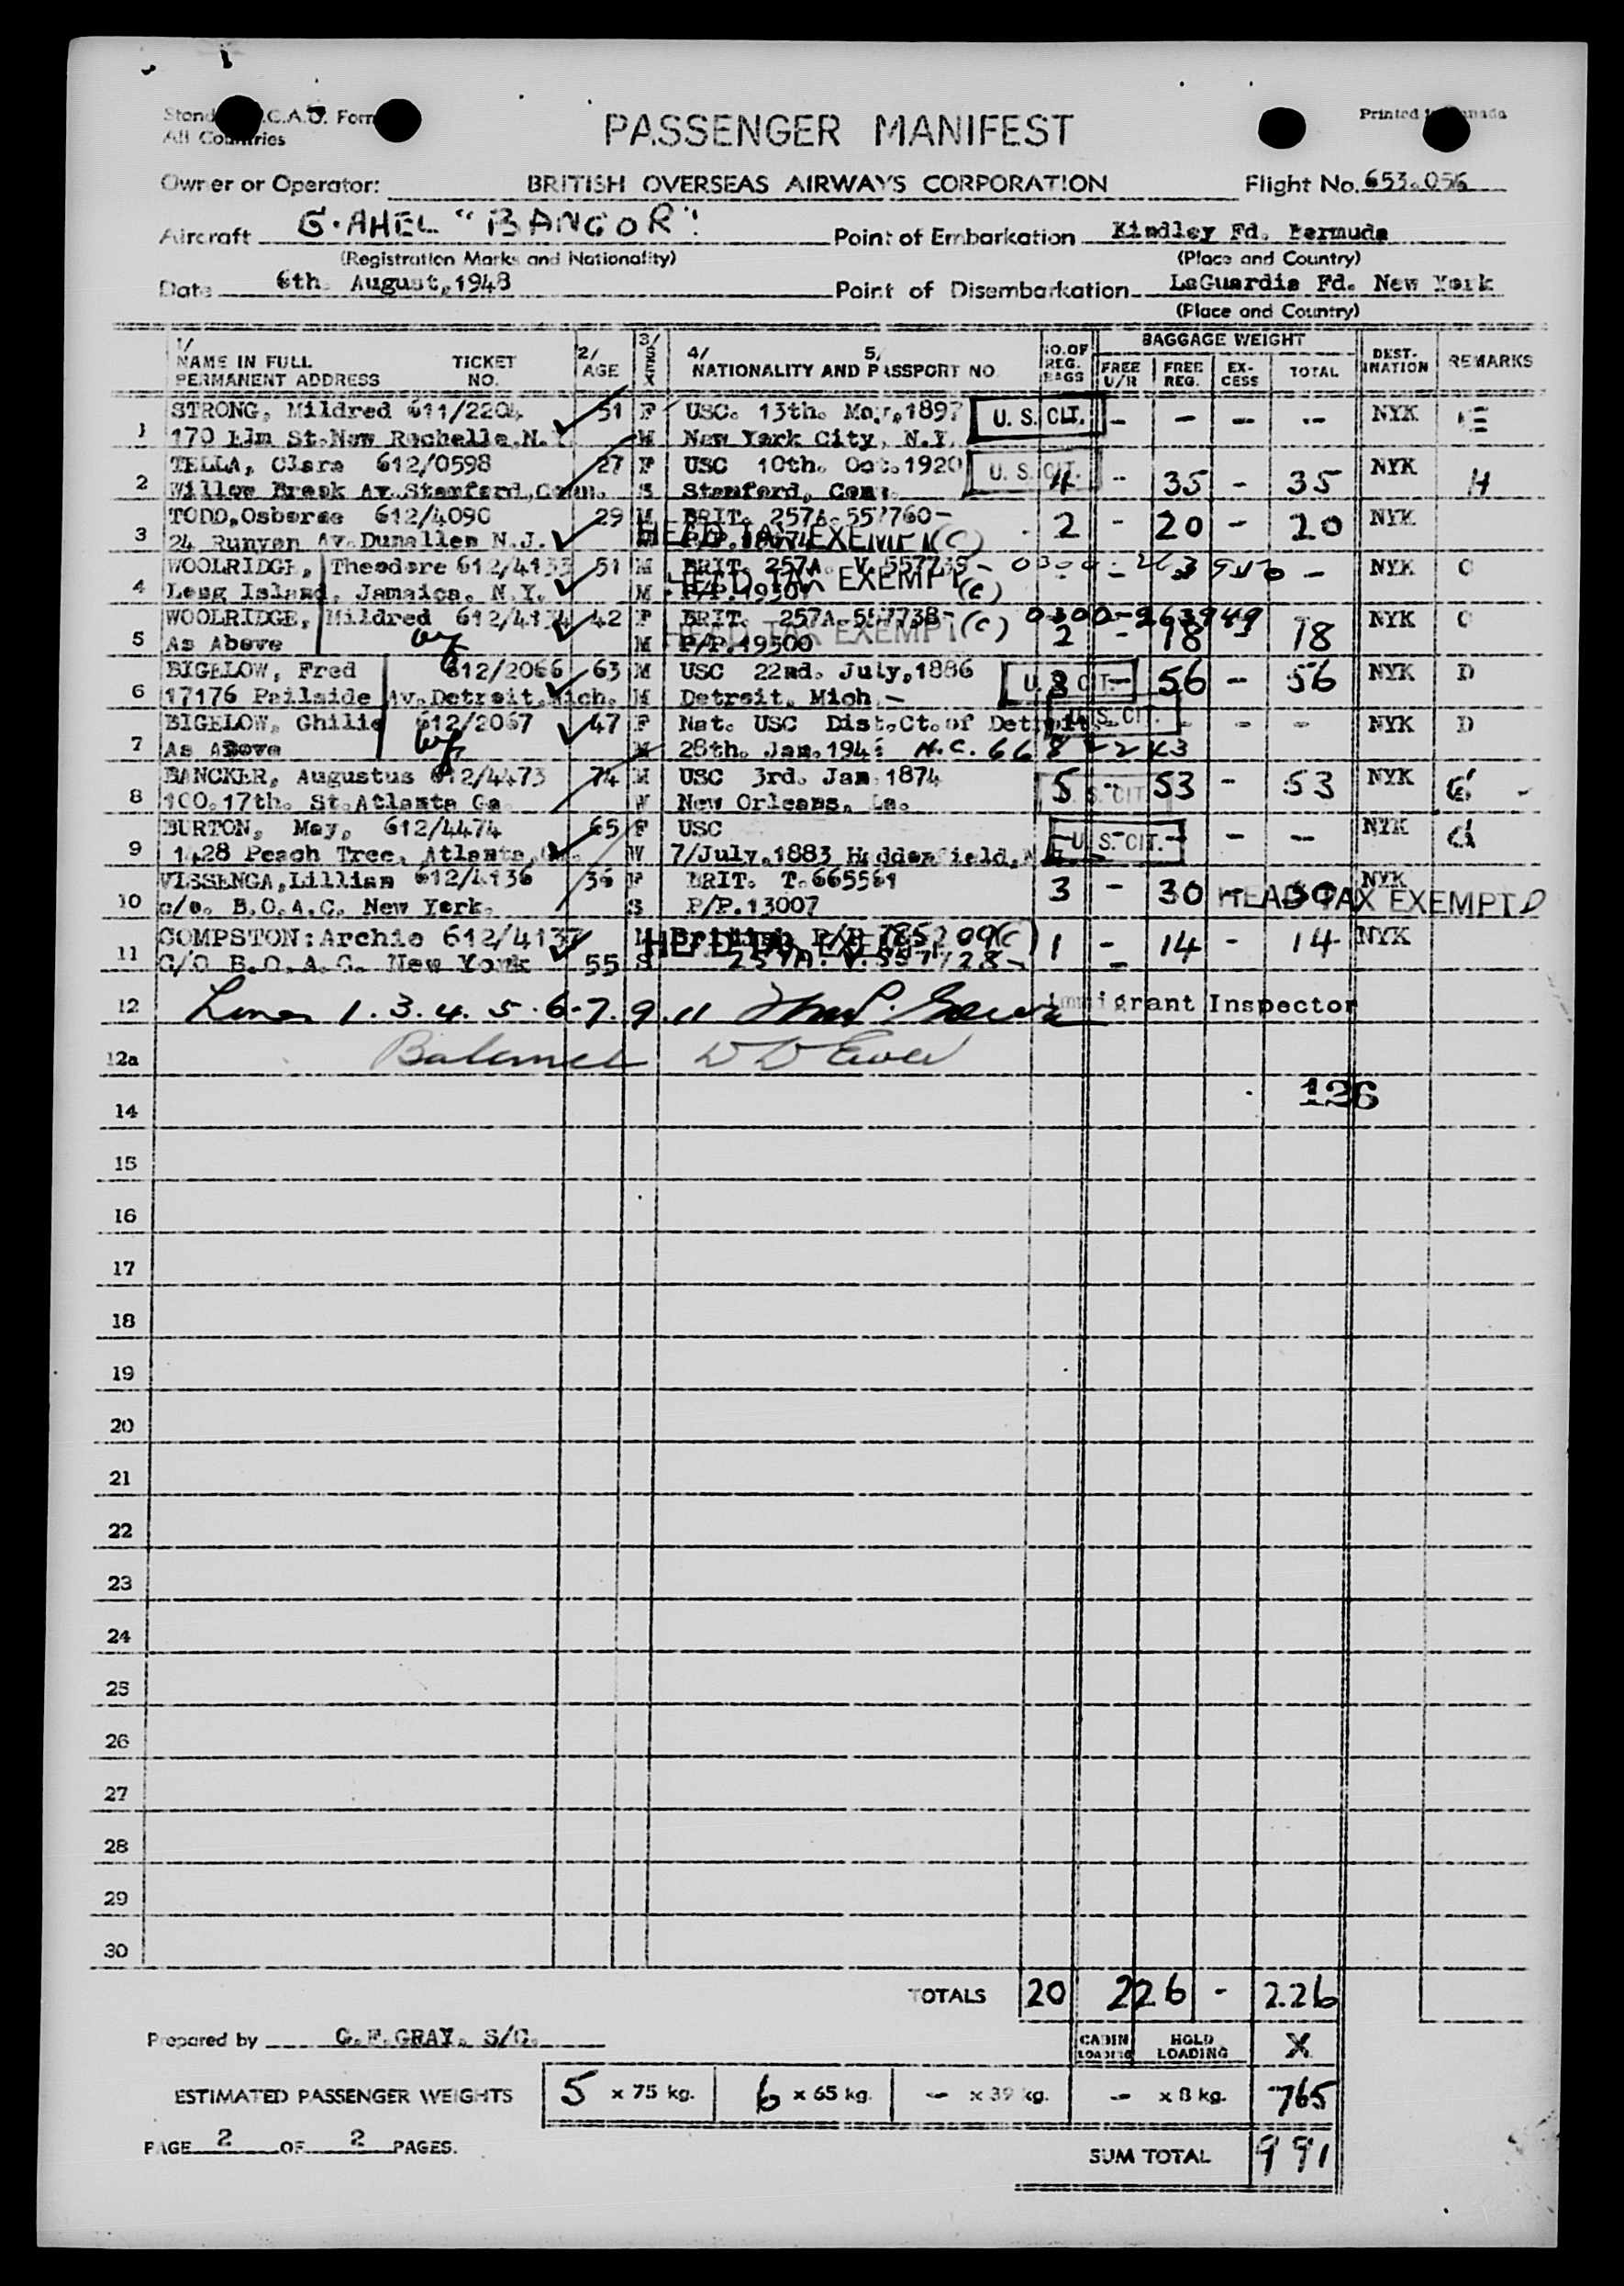 All Countries
Printed in Canada
PASSENGER MANIFEST
Owner or Operator: BRITISH OVERSEAS AIRWAYS CORPORATION Flight No. 653.056
Aircraft G.AHEL "BANGOR" Point of Embarkation Kindley Fd. Bermuda
(Registration Marks and Nationality) (Place and Country)
Date 6th. August, 1948 Point of Disembarkation LaGuardia Fd. New York
(Place and Country)
1/ NAME IN FULL PERMANENT ADDRESS TICKET NO. 2/ AGE 3/ SEX 4/ 5/ NATIONALITY AND PASSPORT NO. NO. OF REG. BAGS BAGGAGE WEIGHT FREE U/R FREE REG. EX-CESS TOTAL DEST-INATION REMARKS
STRONG, Mildred 611/2204 51 F USC. 13th. Mar, 1897 U. S. CIT. - - - - NYK E
1 170 Elm St. New Rochelle, N.Y. W New York City, N.Y.
TELLA, Clara 612/0598 27 F USC 10th. Oct. 1920 U. S. CIT. 4 - 35 - 35 NYK H
2 Willow Break Av. Stamford, Conn. S Stamford, Conn.
TODD, Osborne 612/4090 29 M BRIT. 257A-557760- 2 - 20 - 20 NYK
3 24 Runyen Av. Dunellen N.J. HEAD TAX EXEMPT (C)
WOOLRIDGE, Theodore 612/4133 51 M BRIT. 257A. V. 557739- NYK C
4 Long Island, Jamaica, N.Y. M P/P. HEAD TAX EXEMPT (C)
WOOLRIDGE, Mildred 612/4134 42 F BRIT. 257A-557738- (C) 0300-263949 2 - 18 - 18 NYK C
5 As Above M P/P.19500 HEAD TAX EXEMPT
BIGELOW, Fred 612/2066 63 M USC 22nd. July, 1886 U. S. CIT. 3 - 56 - 56 NYK D
6 17176 Pailside Av. Detroit, Mich. M Detroit, Mich -
BIGELOW, Ghilie 612/2067 47 F Nat. USC Dist. Ct. of Detroit U. S. CIT. - - - NYK D
7 As Above M 28th. Jan. 194
BANCKER, Augustus 612/4473 74 M USC 3rd. Jan 1874 5 - 53 - 53 NYK G
8 100.17th. St. Atlanta Ga W New Orleans, La. U. S. CIT.
BURTON, May, 612/4474 65 F USC U. S. CIT. - - - - NYK G
9 1428 Peach Tree, Atlanta, Ga. W 7/July, 1883 Haddenfield,
VISSENGA, Lillian 612/4136 36 F BRIT. T.665561 3 - 30 - 30 NYK
10 c/o. B.O.A.C. New York. S P/P.13007 HEAD TAX EXEMPT D
COMPSTON: Archie 612/4137 M British P/P 785209 (C) 1 - 14 - 14 NYK
11 C/O B.O.A.C. New York 55 S 257A. V.557728- HEAD TAX EXEMPT
12 Lines 1.3.4.5.6.7.9.11 Immigrant Inspector
12a Balance
126
14
15
16
17
18
19
20
21
22
23
24
25
26
27
28
29
30
TOTALS 20 226 - 226
Prepared by C.F.GRAY. S/O. CABIN LOADING HOLD LOADING X
ESTIMATED PASSENGER WEIGHTS 5 x 75 kg. 6 x 65 kg. - x 39 kg. - x 8 kg. 765
PAGE 2 OF 2 PAGES. SUM TOTAL 991